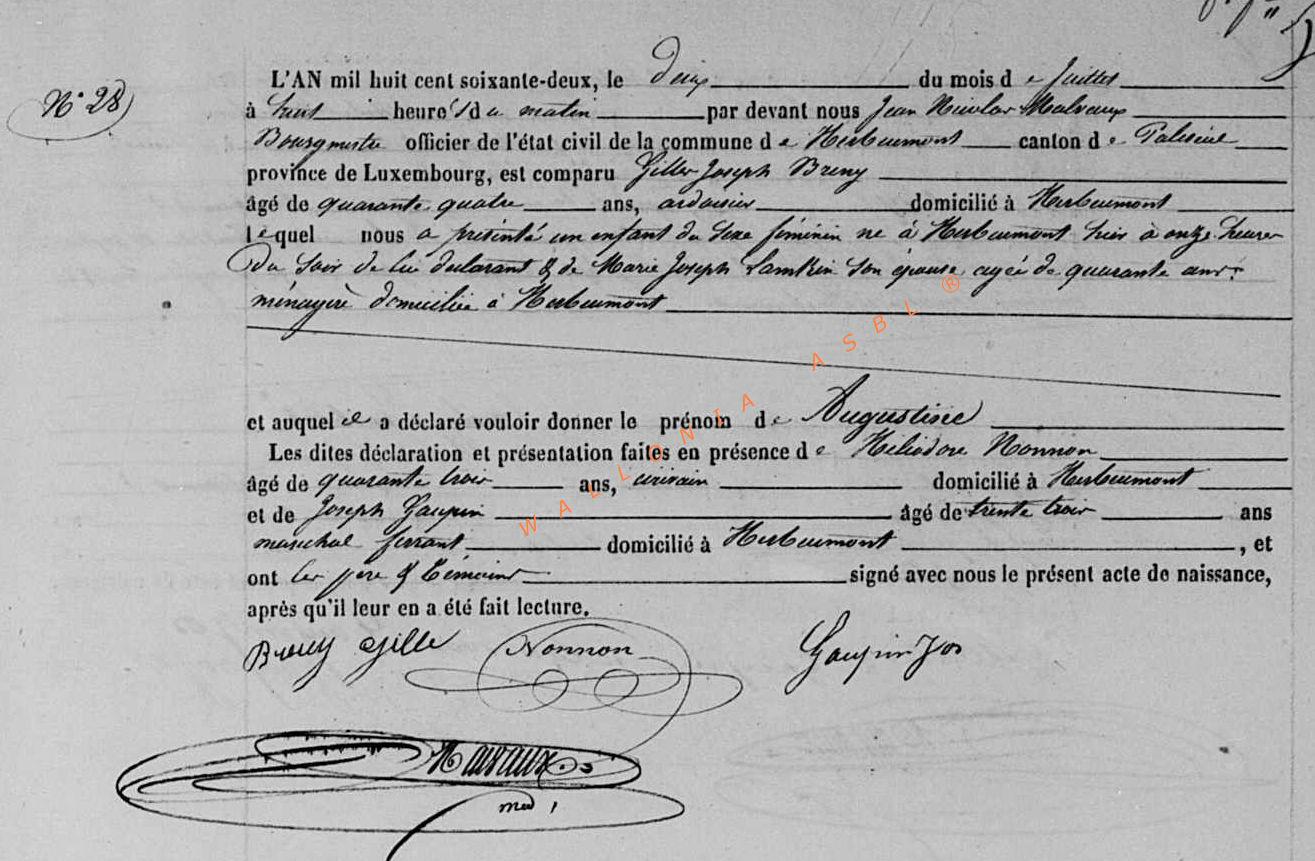 N° 28
L'AN mil huit cent soixante-deux, le Deux du mois de Juillet
à huit heures du matin par devant nous Jean Nicolas Malvaux
Bourgmestre officier de l'état civil de la commune de Herbeumont canton de Paliseul
province de Luxembourg, est comparu Gilles Joseph Breny
âgé de quarante quatre ans, ardoisier domicilié à Herbeumont
lequel nous a présenté un enfant du sexe féminin né à Herbeumont hier à onze heures
du soir de lui déclarant & de Marie Joseph Lamkin son épouse agée de quarante ans
ménagère domiciliée à Herbeumont
et auquel il a déclaré vouloir donner le prénom de Augustine
Les dites déclaration et présentation faites en présence de Héliodore Nonnon
âgé de quarante trois ans, domicilié à Herbeumont
et de Joseph Gaupin âgé de trente trois ans
maréchal ferrant domicilié à Herbeumont, et
ont les père & témoins signé avec nous le présent acte de naissance,
après qu'il leur en a été fait lecture.
Breny Gille Nonnon Gaupin Jos
WALLONIA ASBL ®